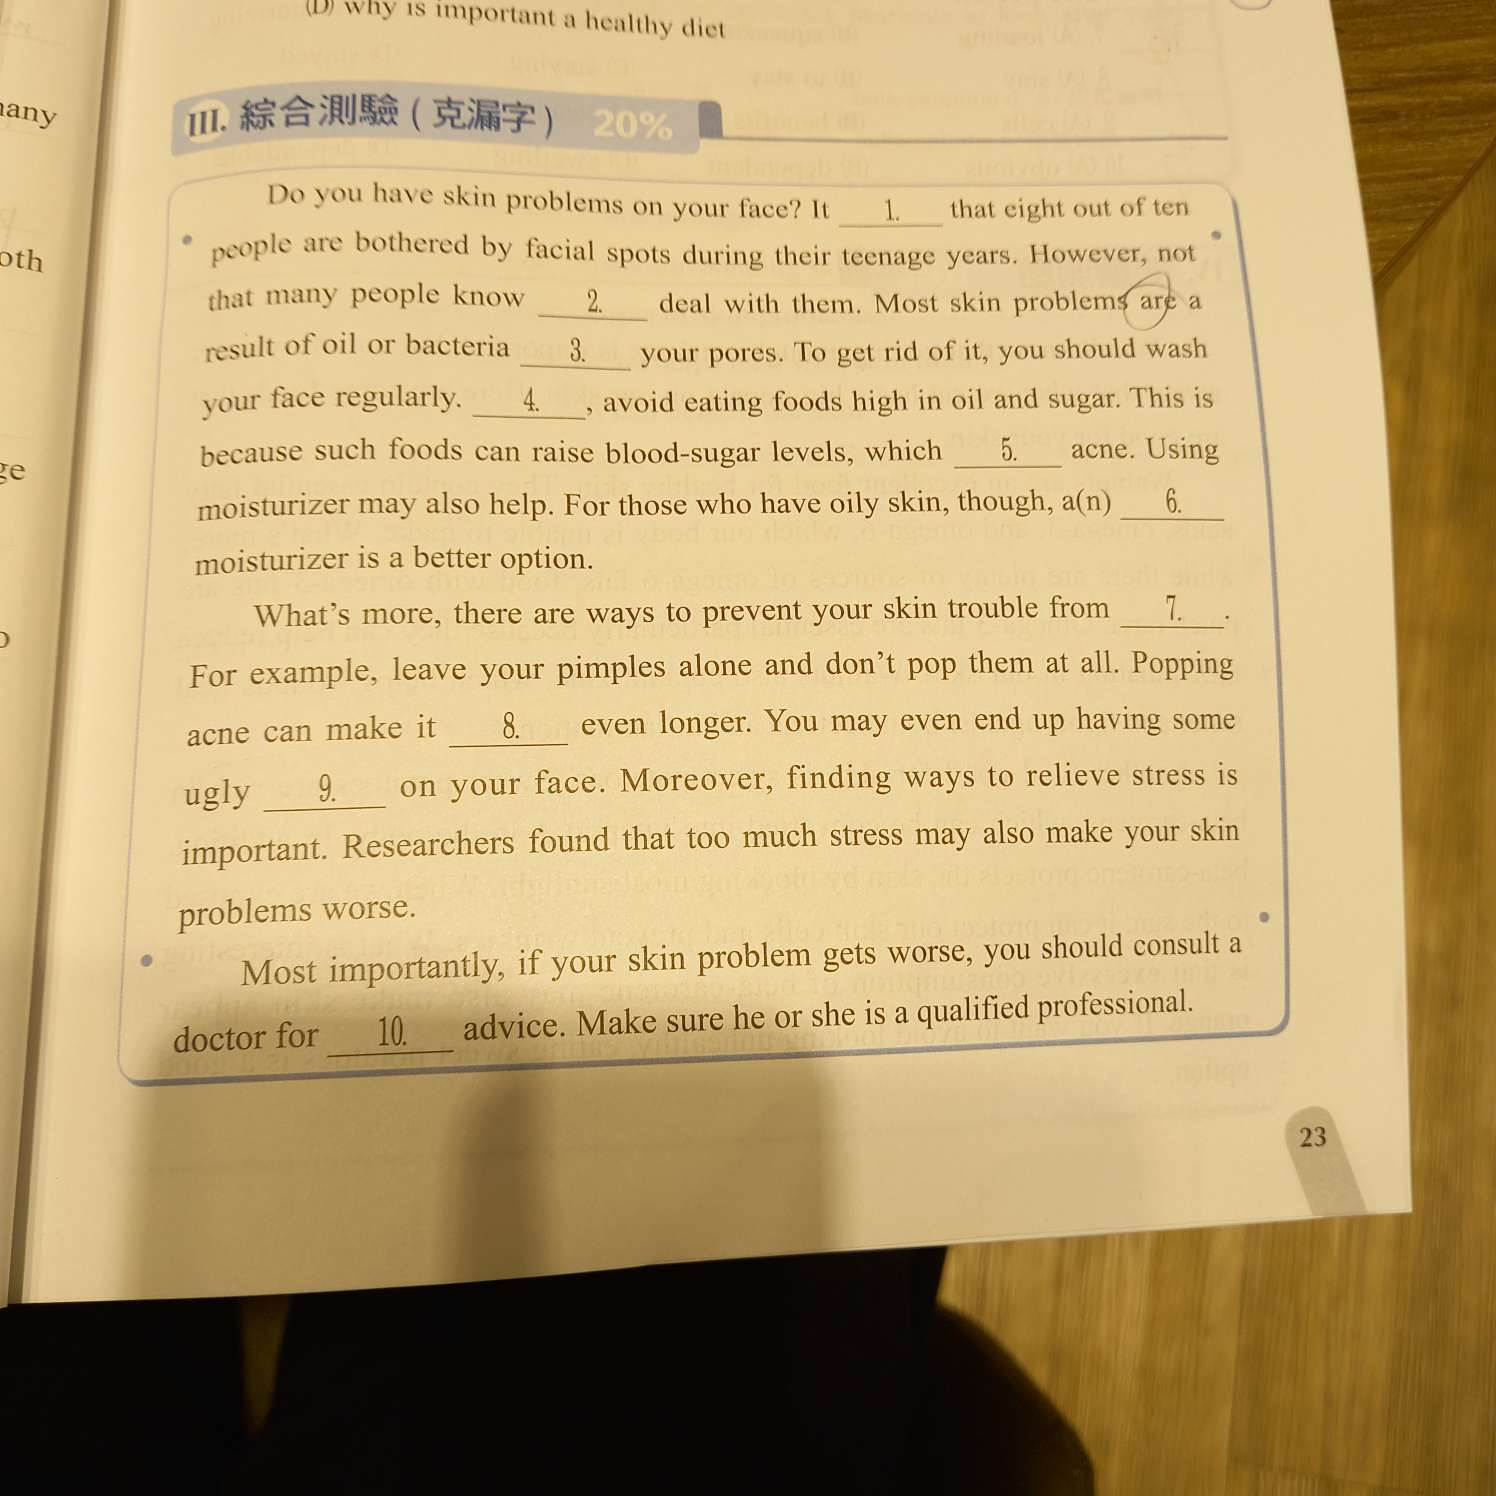 (D) why is important a healthy diet
any
oth
ge
III. 綜合測驗 ( 克漏字 ) 20%
Do you have skin problems on your face? It 1. that eight out of ten
people are bothered by facial spots during their teenage years. However, not
that many people know 2. deal with them. Most skin problems are a
result of oil or bacteria 3. your pores. To get rid of it, you should wash
your face regularly. 4. , avoid eating foods high in oil and sugar. This is
because such foods can raise blood-sugar levels, which 5. acne. Using
moisturizer may also help. For those who have oily skin, though, a(n) 6.
moisturizer is a better option.
What's more, there are ways to prevent your skin trouble from 7. .
For example, leave your pimples alone and don't pop them at all. Popping
acne can make it 8. even longer. You may even end up having some
ugly 9. on your face. Moreover, finding ways to relieve stress is
important. Researchers found that too much stress may also make your skin
problems worse.
Most importantly, if your skin problem gets worse, you should consult a
doctor for 10. advice. Make sure he or she is a qualified professional.
23